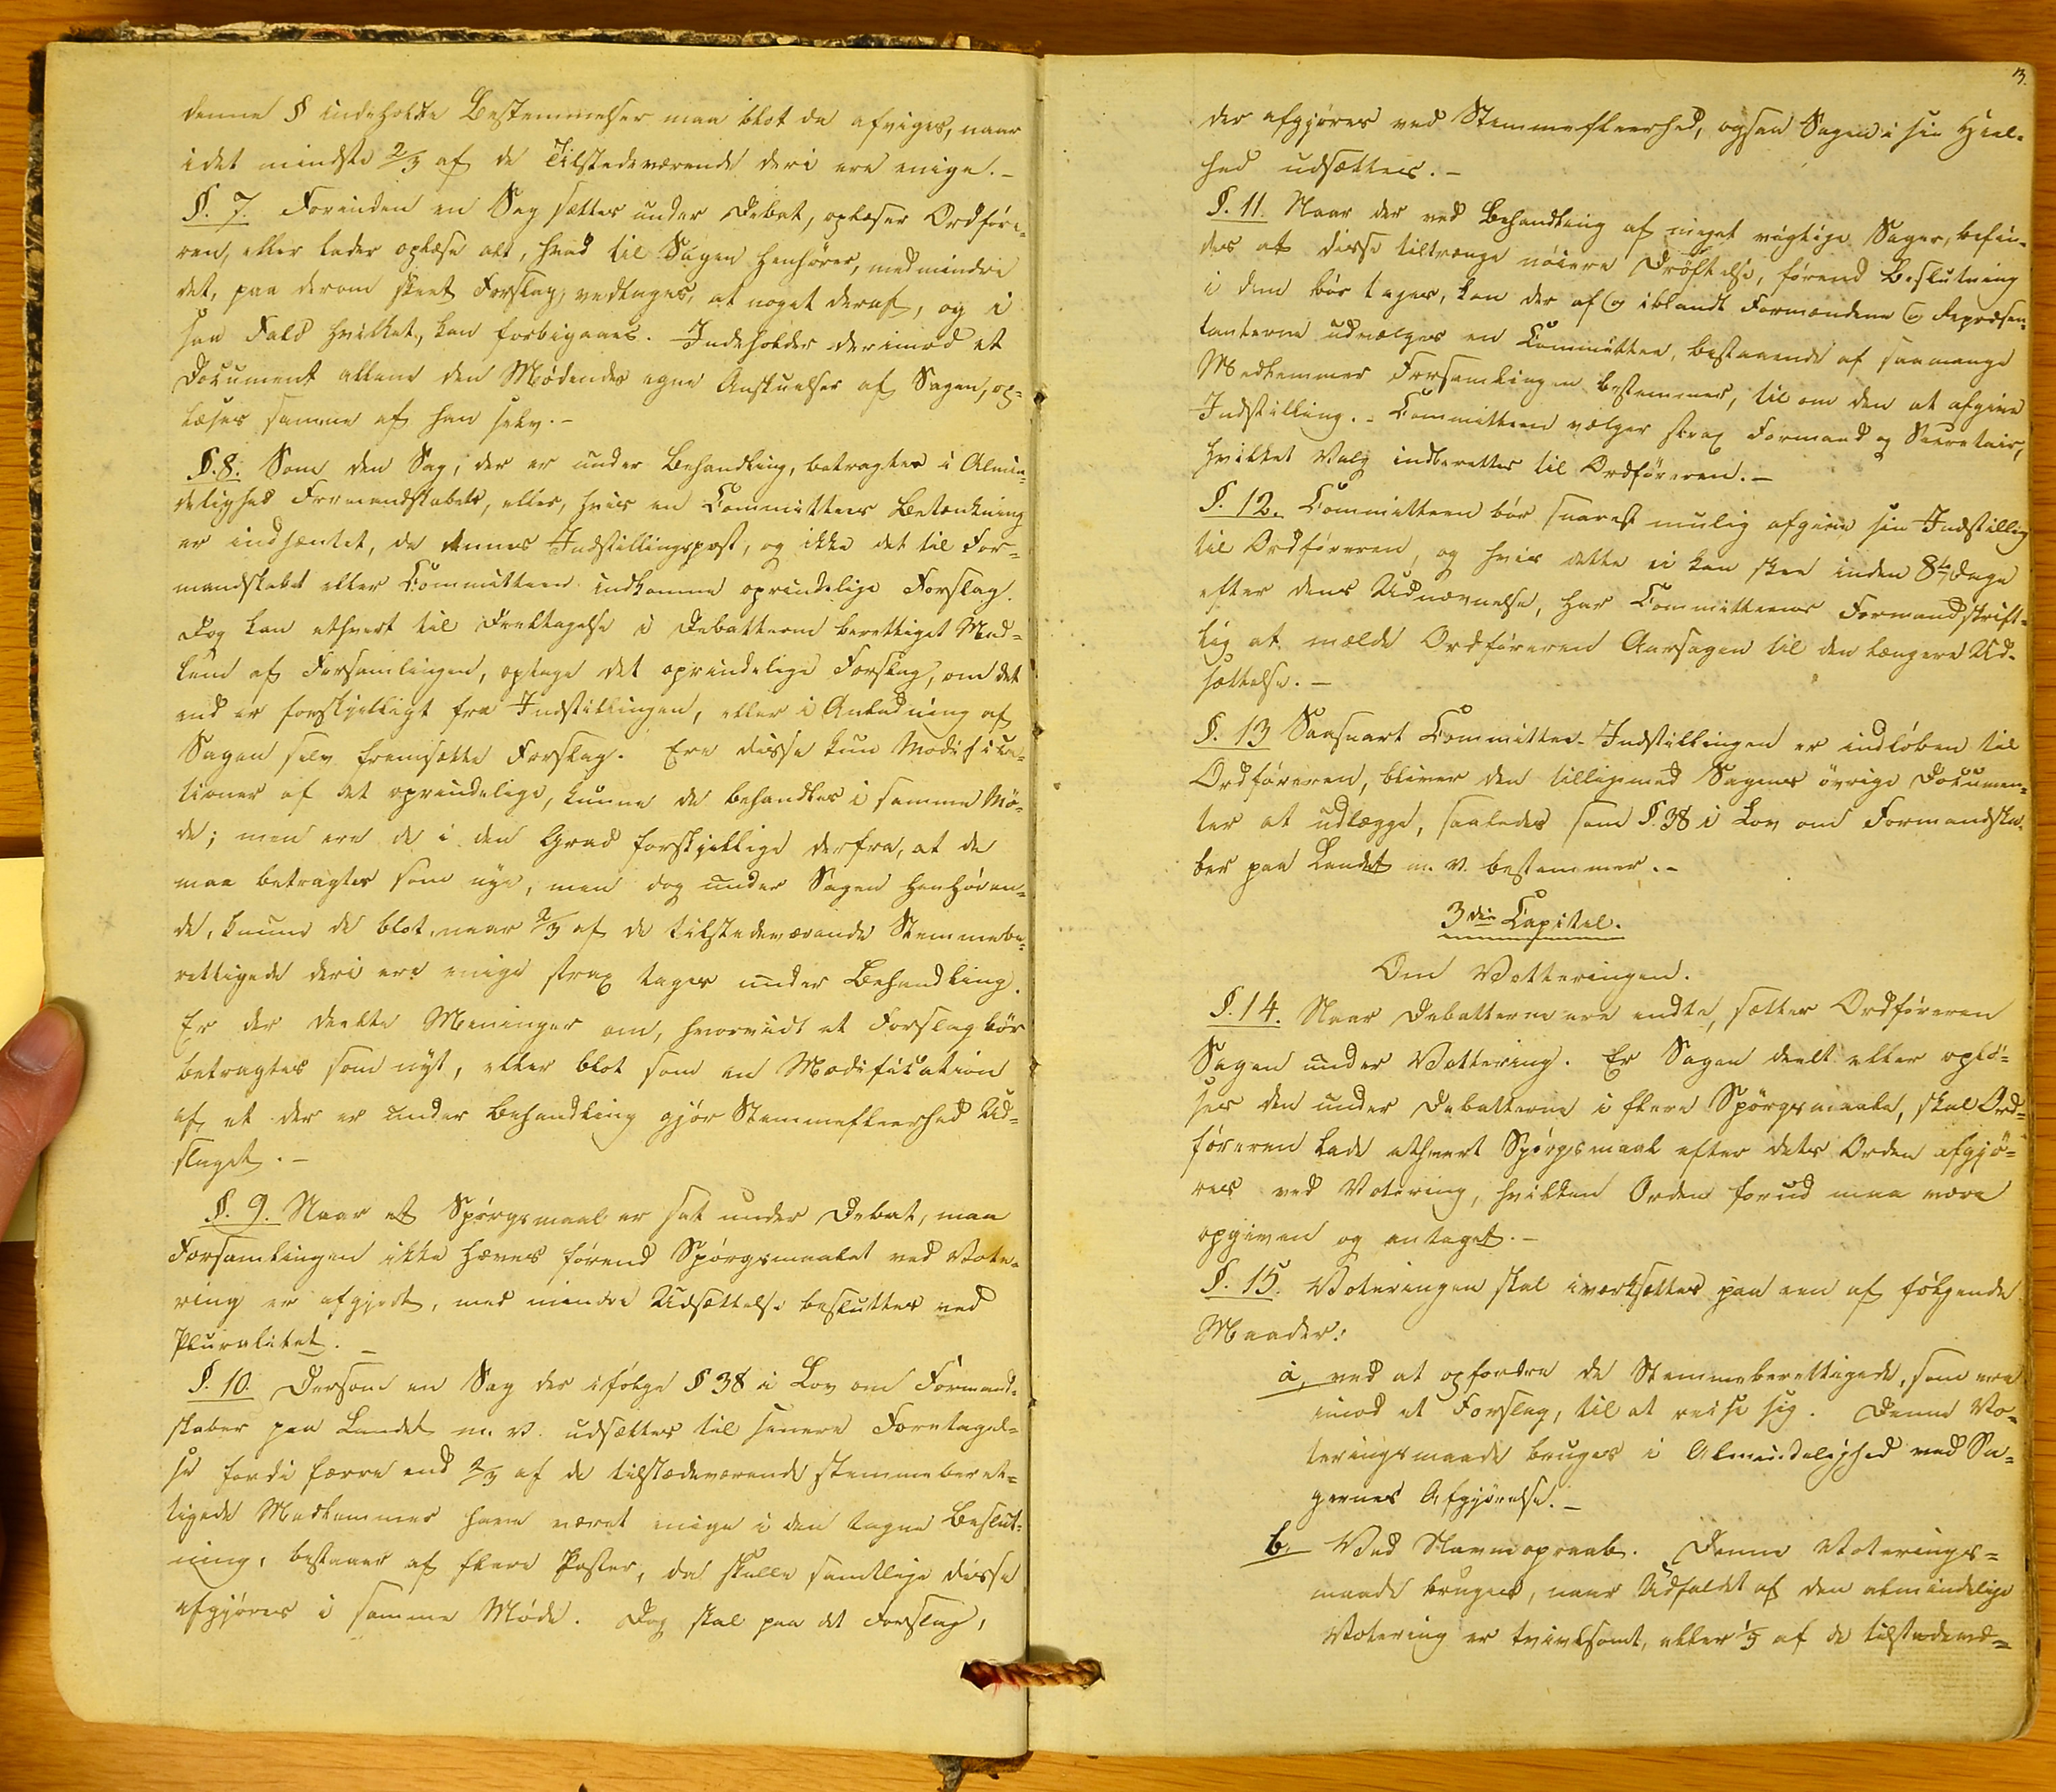 denne § indeholdte Bestemmelser maa blot da afviges, naar
i det mindste 2/3 af de Tilstedeværende deri ere enige. –
§. 7. Forinden en Sag sættes under Debat, oplæser Ordføre-
ren, eller lader oplæse alt, hvad til Sagen henhører, medmindre
det, paa derom skeet Forslag, vedtages, at noget deraf, og i
saa Fald hvilket, kan forbigaaes. Indeholder derimod et
Document allene den Mødendes egne Anskuelser af Sagen, op-
læses samme af ham selv. –
§. 8. Som den Sag, der er under Behandling, betragtes i Almin-
delighed Formandskabets, eller, hvis en Committees Betænkning
er indhæntet, da dennes Indstillingspost, og ikke det til For-
mandskabet eller Committeen indkomne oprindelige Forslag.
Dog kan ethvert til Deeltagelse i Debatterne berettiget Med-
lem af Forsamlingen, optage det oprindelige Forslag, om det
end er forskjelligt fra Indstillingen, eller i Anledning af
Sagen selv fremsætte Forslag. Ere disse kun Modifica-
tioner af det oprindelige, kunne de behandles i samme Mø-
de; men ere de i den Grad forskjellige derfra, at de
maa betragtes som nye, men dog under Sagen henhøren-
de, kunne de blot, naar 2/3 af de tilstedeværende Stemmebe-
rettigede deri ere enige strax tages under Behandling.
Er der deelte Meninger om, hvorvidt et Forslag bør
betragtes som nyt, eller blot som en Modification
af et der er under Behandling gjør Stemmefleerhed Ud-
slaget. –
§. 9. Naar et Spørgsmaal er sat under Debat, maa
Forsamlingen ikke hæves førend Spørgsmaalet ved Vote-
ring er afgjort, med mindre Udsættelse besluttes ved
Pluralitet. –
§. 10. Dersom en Sag der ifølge § 38 i Lov om Formand-
skaber paa Landet m. v. udsættes til senere Foretagel-
se fordi færre end 2/3 af de tilstædeværende stemmeberet-
tigede Medlemmer have været enige i den tagne Beslut-
ning, bestaaer af flere Poster, da skulle samtlige disse
afgjøres i samme Møde. Dog skal paa det Forslag,
3.
der afgjøres ved Stemmefleerhed, ogsaa Sagen i sin Heel-
hed udsættes. –
§. 11. Naar der ved Behandling af meget vigtige Sager, befin-
des at disse tiltrænge nøiere Drøftelse, førend Beslutning
i dem bør tages, kan der af og iblandt Formændene og Repræsen-
tanterne udvælges en Committee, bestaaende af saamange
Medlemmer Forsamlingen bestemmer, til om den at afgive
Indstilling. – Committeen vælger strax Formand og Secretair,
hvilket Valg indberettes til Ordføreren. –
§. 12. Committeen bør snarest mulig afgive sin Indstilling
til Ordføreren, og hvis dette ei kan skee inden 8te Dage
efter dens Udnævnelse, har Committeens Formand skrift-
lig at melde Ordføreren Aarsagen til den længere Ud-
sættelse. –
§. 13 Saasnart Committee-Indstillingen er indløben til
Ordføreren, bliver den tilligemed Sagens øvrige Documen-
ter at udlægge, saaledes som § 38 i Lov om Formandska-
ber paa Landet m. v. bestemmer. –
3die Capitel.
Om Votteringen.
§. 14. Naar Debatterne ere endte, sætter Ordføreren
Sagen under Vottering. Er Sagen deelt eller oplø-
ses den under Debatterne i flere Spørgsmaale, skal Ord-
føreren lade ethvert Spørgsmaal efter dets Orden afgjø-
res ved Votering, hvilken Orden forud maa være
opgiven og antaget. –
§. 15. Voteringen skal iværksættes paa een af følgende
Maader:
a, ved at opfordre de Stemmeberettigede, som ere
imod et Forslag, til at reise sig. Denne Vo-
teringsmaade bruges i Almindelighed ved Sa-
gernes Afgjørelse. –
b, Ved Navneopraab. Denne Voterings-
maade bruges, naar Udfaldet af den almindelige
Votering er tvivlsomt, eller 1/5 af de tilstedevæ-